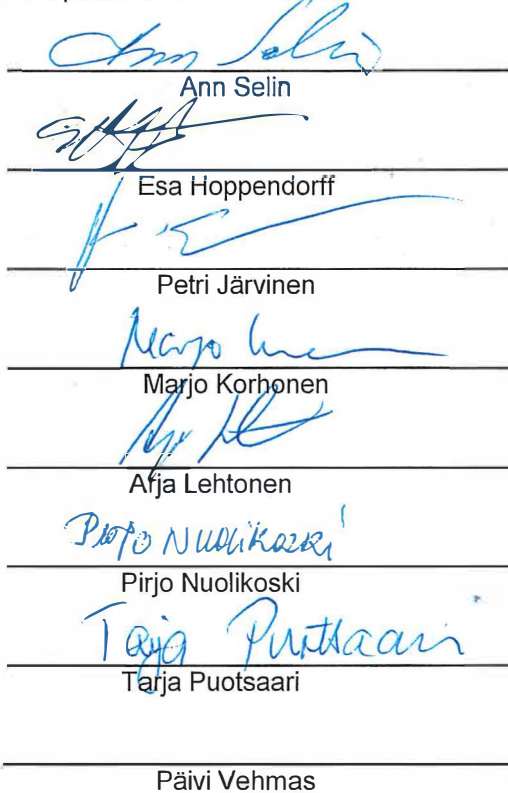 Ann Selin
Ann Selin
Esa Hoppendorff
Petri Järvinen
Marjo
Marjo Korhonen
Arja Lehtonen
Pirjo Nuolikoski
Pirjo Nuolikoski
Tarja Puotsaari
Tarja Puotsaari
Päivi Vehmas